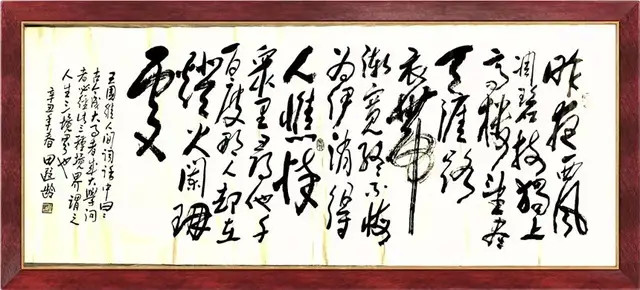 昨夜西风
凋碧树独上
高楼望尽
天涯路
衣带
渐宽终不悔
为伊消得
人憔悴
众里寻他千
百度那人却在
燈火阑珊
處
王国维人间词话中曰:
古今成大事者成大學问
者必经过三种境界谓之
人生三境界也
辛丑年春 田